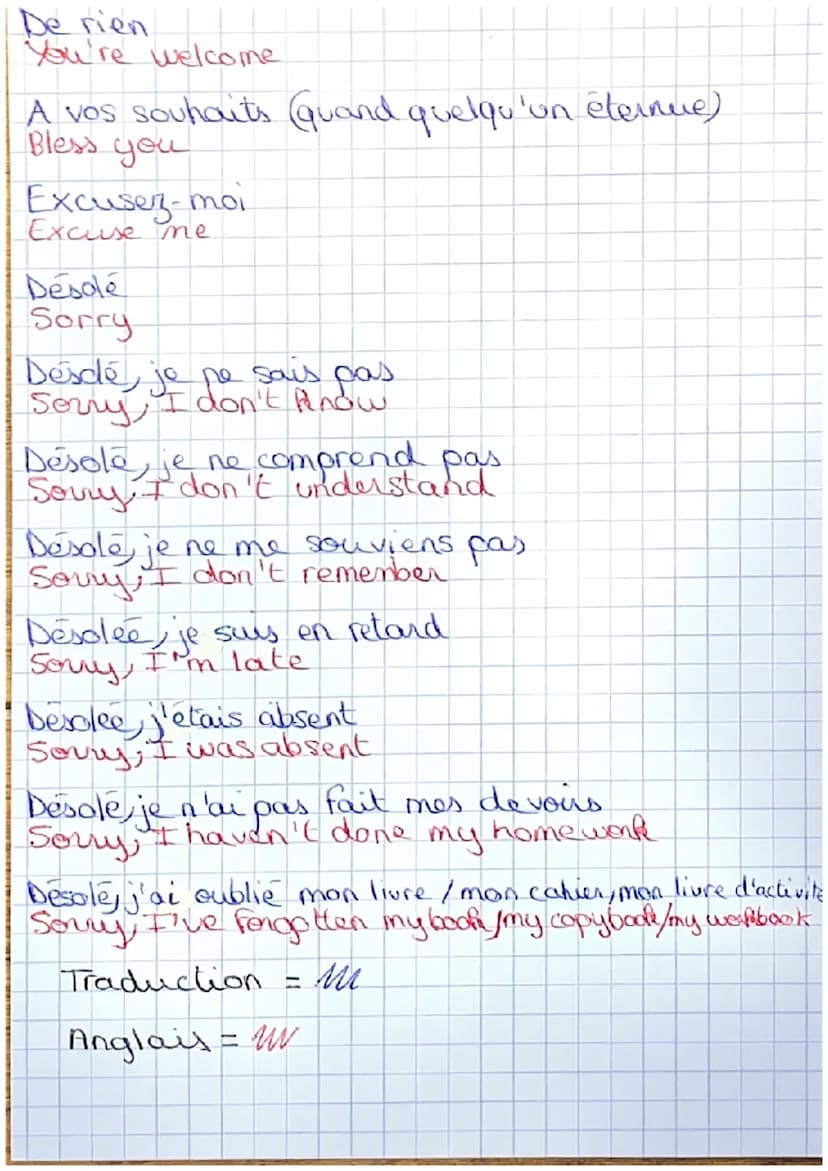 De rien
You're welcome
A vos souhaits (quand quelqu'un éternue)
Bless you
Excusez-moi
Excuse me
Désolé
Sorry
Désolé, je ne sais pas
Sorry, I don't know
Désolé, je ne comprend pas
Sorry, I don't understand
Désolé, je ne me souviens pas
Sorry, I don't remember
Désolée, je suis en retard
Sorry, I'm late
Désolée, j'étais absent
Sorry, I was absent
Désolé, je n'ai pas fait mes devoirs
Sorry, I haven't done my homework
Désolé, j'ai oublié mon livre / mon cahier, mon livre d'activité
Sorry, I've forgotten my book/my copybook/my workbook
Traduction =
Anglais =